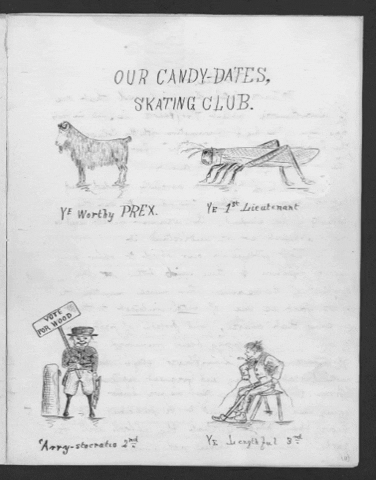 OUR CANDY-DATES,
SKATING CLUB.
Yᴱ Worthy PREX.
Yᴱ 1st Lieutenant
VOTE
FOR WOOD
'Arry-stocratic 2nd
Yᴱ Lengthful 3rd